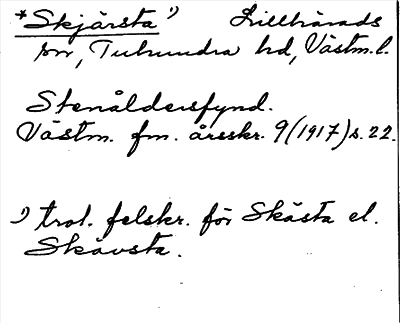 *Skjärsta ¹) Lillhärads
sn, Tuhundra hd, Västm.l.
Stenåldersfynd.
Västm. fm. årsskr. 9(1917)s.22.
¹) trol. felskr. för Skästa el.
Skävsta.